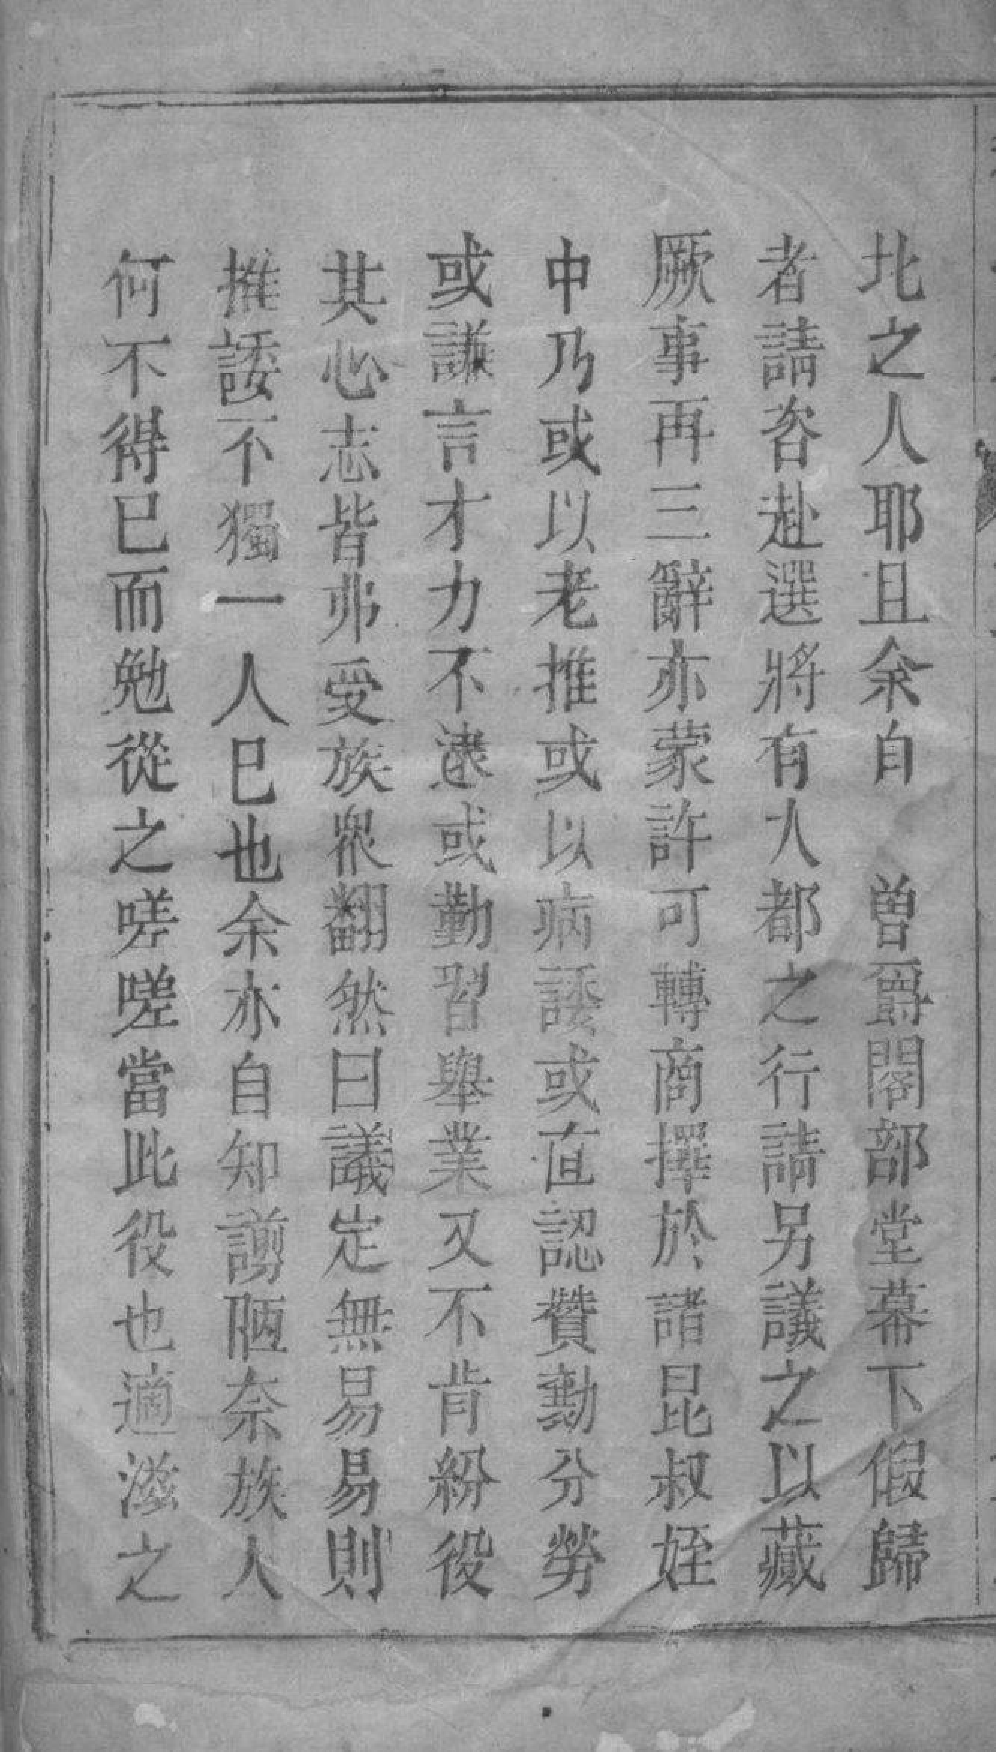 北之人耶且余自　曽爵閣部堂幕下假歸
者請咨赴選將有人都之行請另議之以藏
厥事再三辭亦蒙許可轉商擇於諸昆叔姪
中乃或以老推或以病諉或直認贊勷分勞
或謙言才力不逮或勤習舉業又不肯紛役
其心志皆弗受族衆翻然曰議定無易易則
推諉不獨一人巳也余亦自知譾陋奈族人
何不得巳而勉從之嗟嗟當此役也適滋之